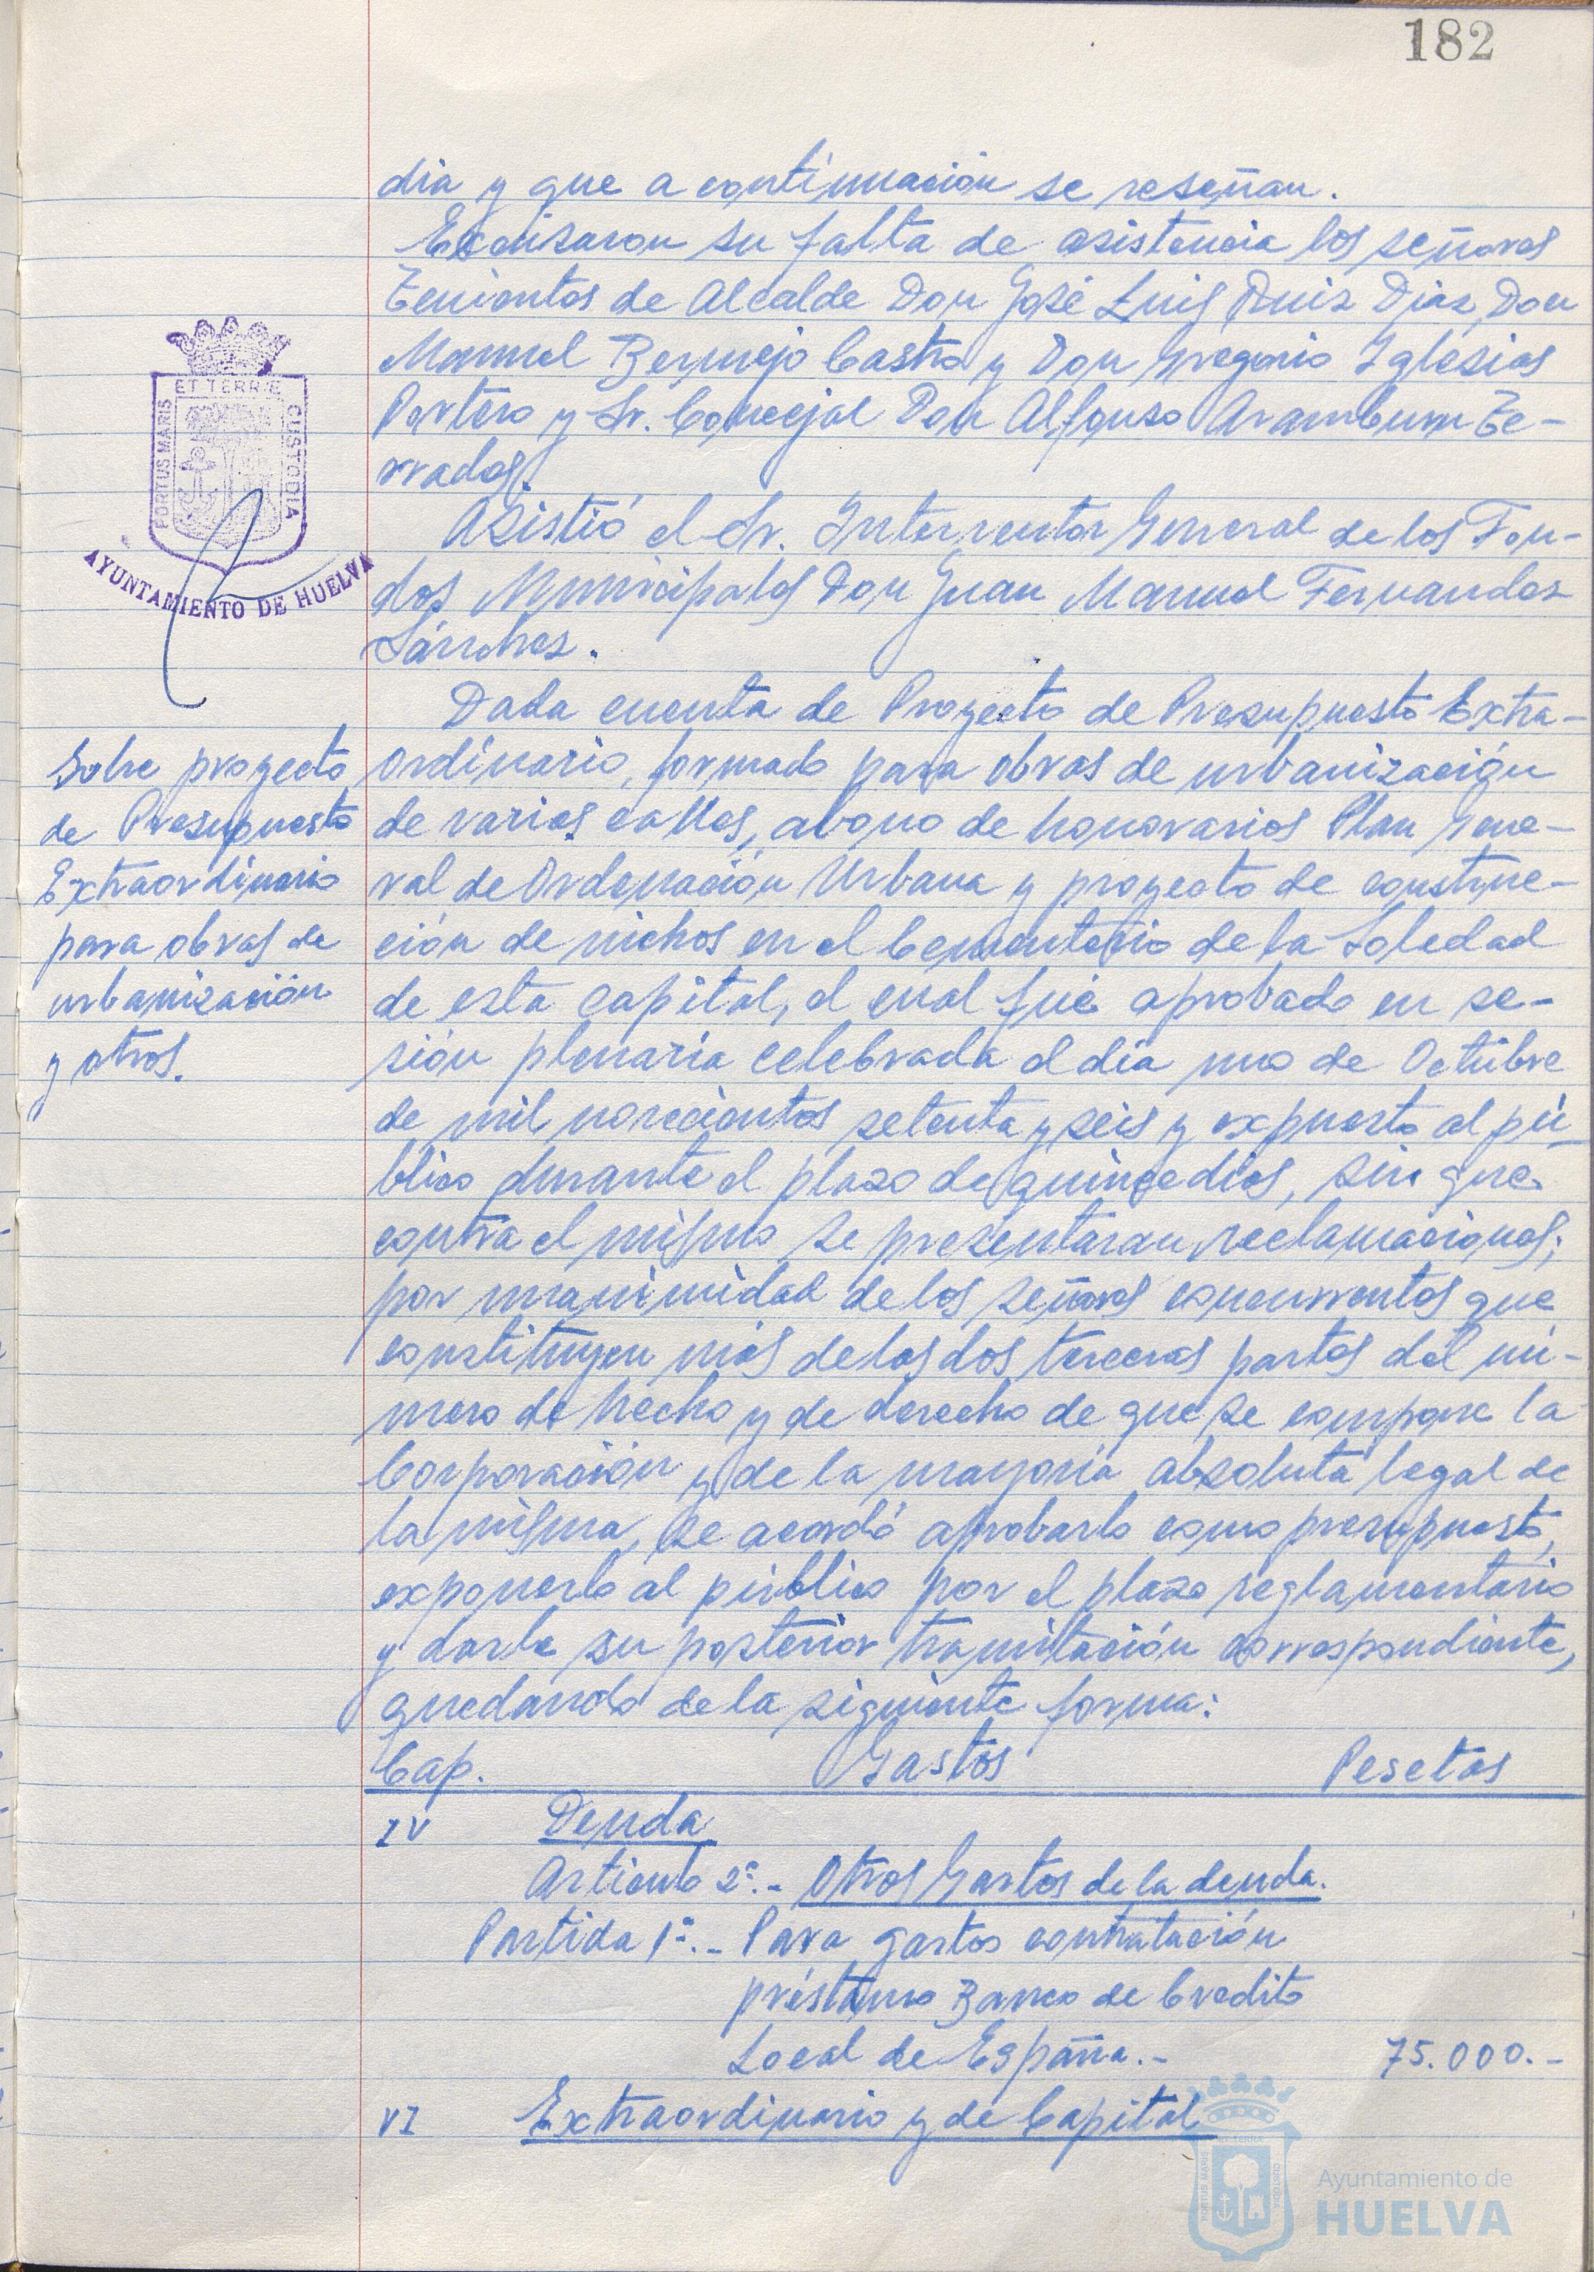 182
dia y que a continuación se reseñan.
Excusaron su falta de asistencia los señores
Tenientes de Alcalde Don José Luis Ruiz Diaz, Don
Manuel Bermejo Castro y Don Gregorio Iglesias
Portero y Sr. Concejal Don Alfonso Aramburu Te-
rrados.
Asistió el Sr. Interventor General de los Fon-
dos Municipales Don Juan Manuel Fernandez
Sánchez.
ET TERRÆ
PORTUS MARIS
CUSTODIA
AYUNTAMIENTO DE HUELVA
Sobre proyecto
de Presupuesto
Extraordinario
para obras de
urbanización
y otros.
Dada cuenta de Proyecto de Presupuesto Extra-
ordinario, formado para obras de urbanización
de varias calles, abono de honorarios Plan Gene-
ral de Ordenación Urbana y proyecto de construc-
ción de nichos en el Cementerio de la Soledad
de esta Capital, el cual fué aprobado en se-
sión plenaria celebrada el día uno de Octubre
de mil novecientos setenta y seis y expuesto al pú-
blico durante el plazo de quince dias, sin que
contra el mismo se presentaran reclamaciones;
por unanimidad de los señores concurrentes que
constituyen más de las dos terceras partes del nú-
mero de hecho y de derecho de que se compone la
Corporación y de la mayoria absoluta legal de
la misma, se acordó aprobarlo como presupuesto,
exponerlo al público por el plazo reglamentario
y darle su posterior tramitación correspondiente,
quedando de la siguiente forma:
Cap. Gastos Pesetas
IV Deuda
Articulo 2º.- Otros Gastos de la deuda.
Partida 1ª.- Para gastos contratación
préstamo Banco de Credito
Local de España.- 75.000.-
VI Extraordinario y de Capital
Ayuntamiento de
HUELVA